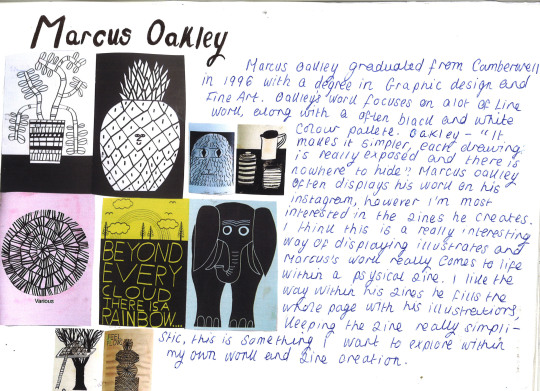 Marcus Oakley
Marcus Oakley graduated from Camberwell
in 1996 with a degree in Graphic design and
Fine Art. Oakley's work focuses on alot of line
work, along with a often black and white
colour pallete. Oakley - "It
makes it simpler, each drawing
is really exposed and there is
nowhere to hide". Marcus Oakley
often displays his work on his
instagram, however I'm most
interested in the zines he creates.
I think this is a really interesting
way of displaying illustrates and
Marcus's work really comes to life
within a psysical zine. I like the
way within his zines he fills the
whole page with his illustrations,
keeping the zine really simpli-
stic, this is something I want to explore within
my own work and zine creation.
Various
BEYOND
EVERY
CLOUD
THERE IS A
RAINBOW...